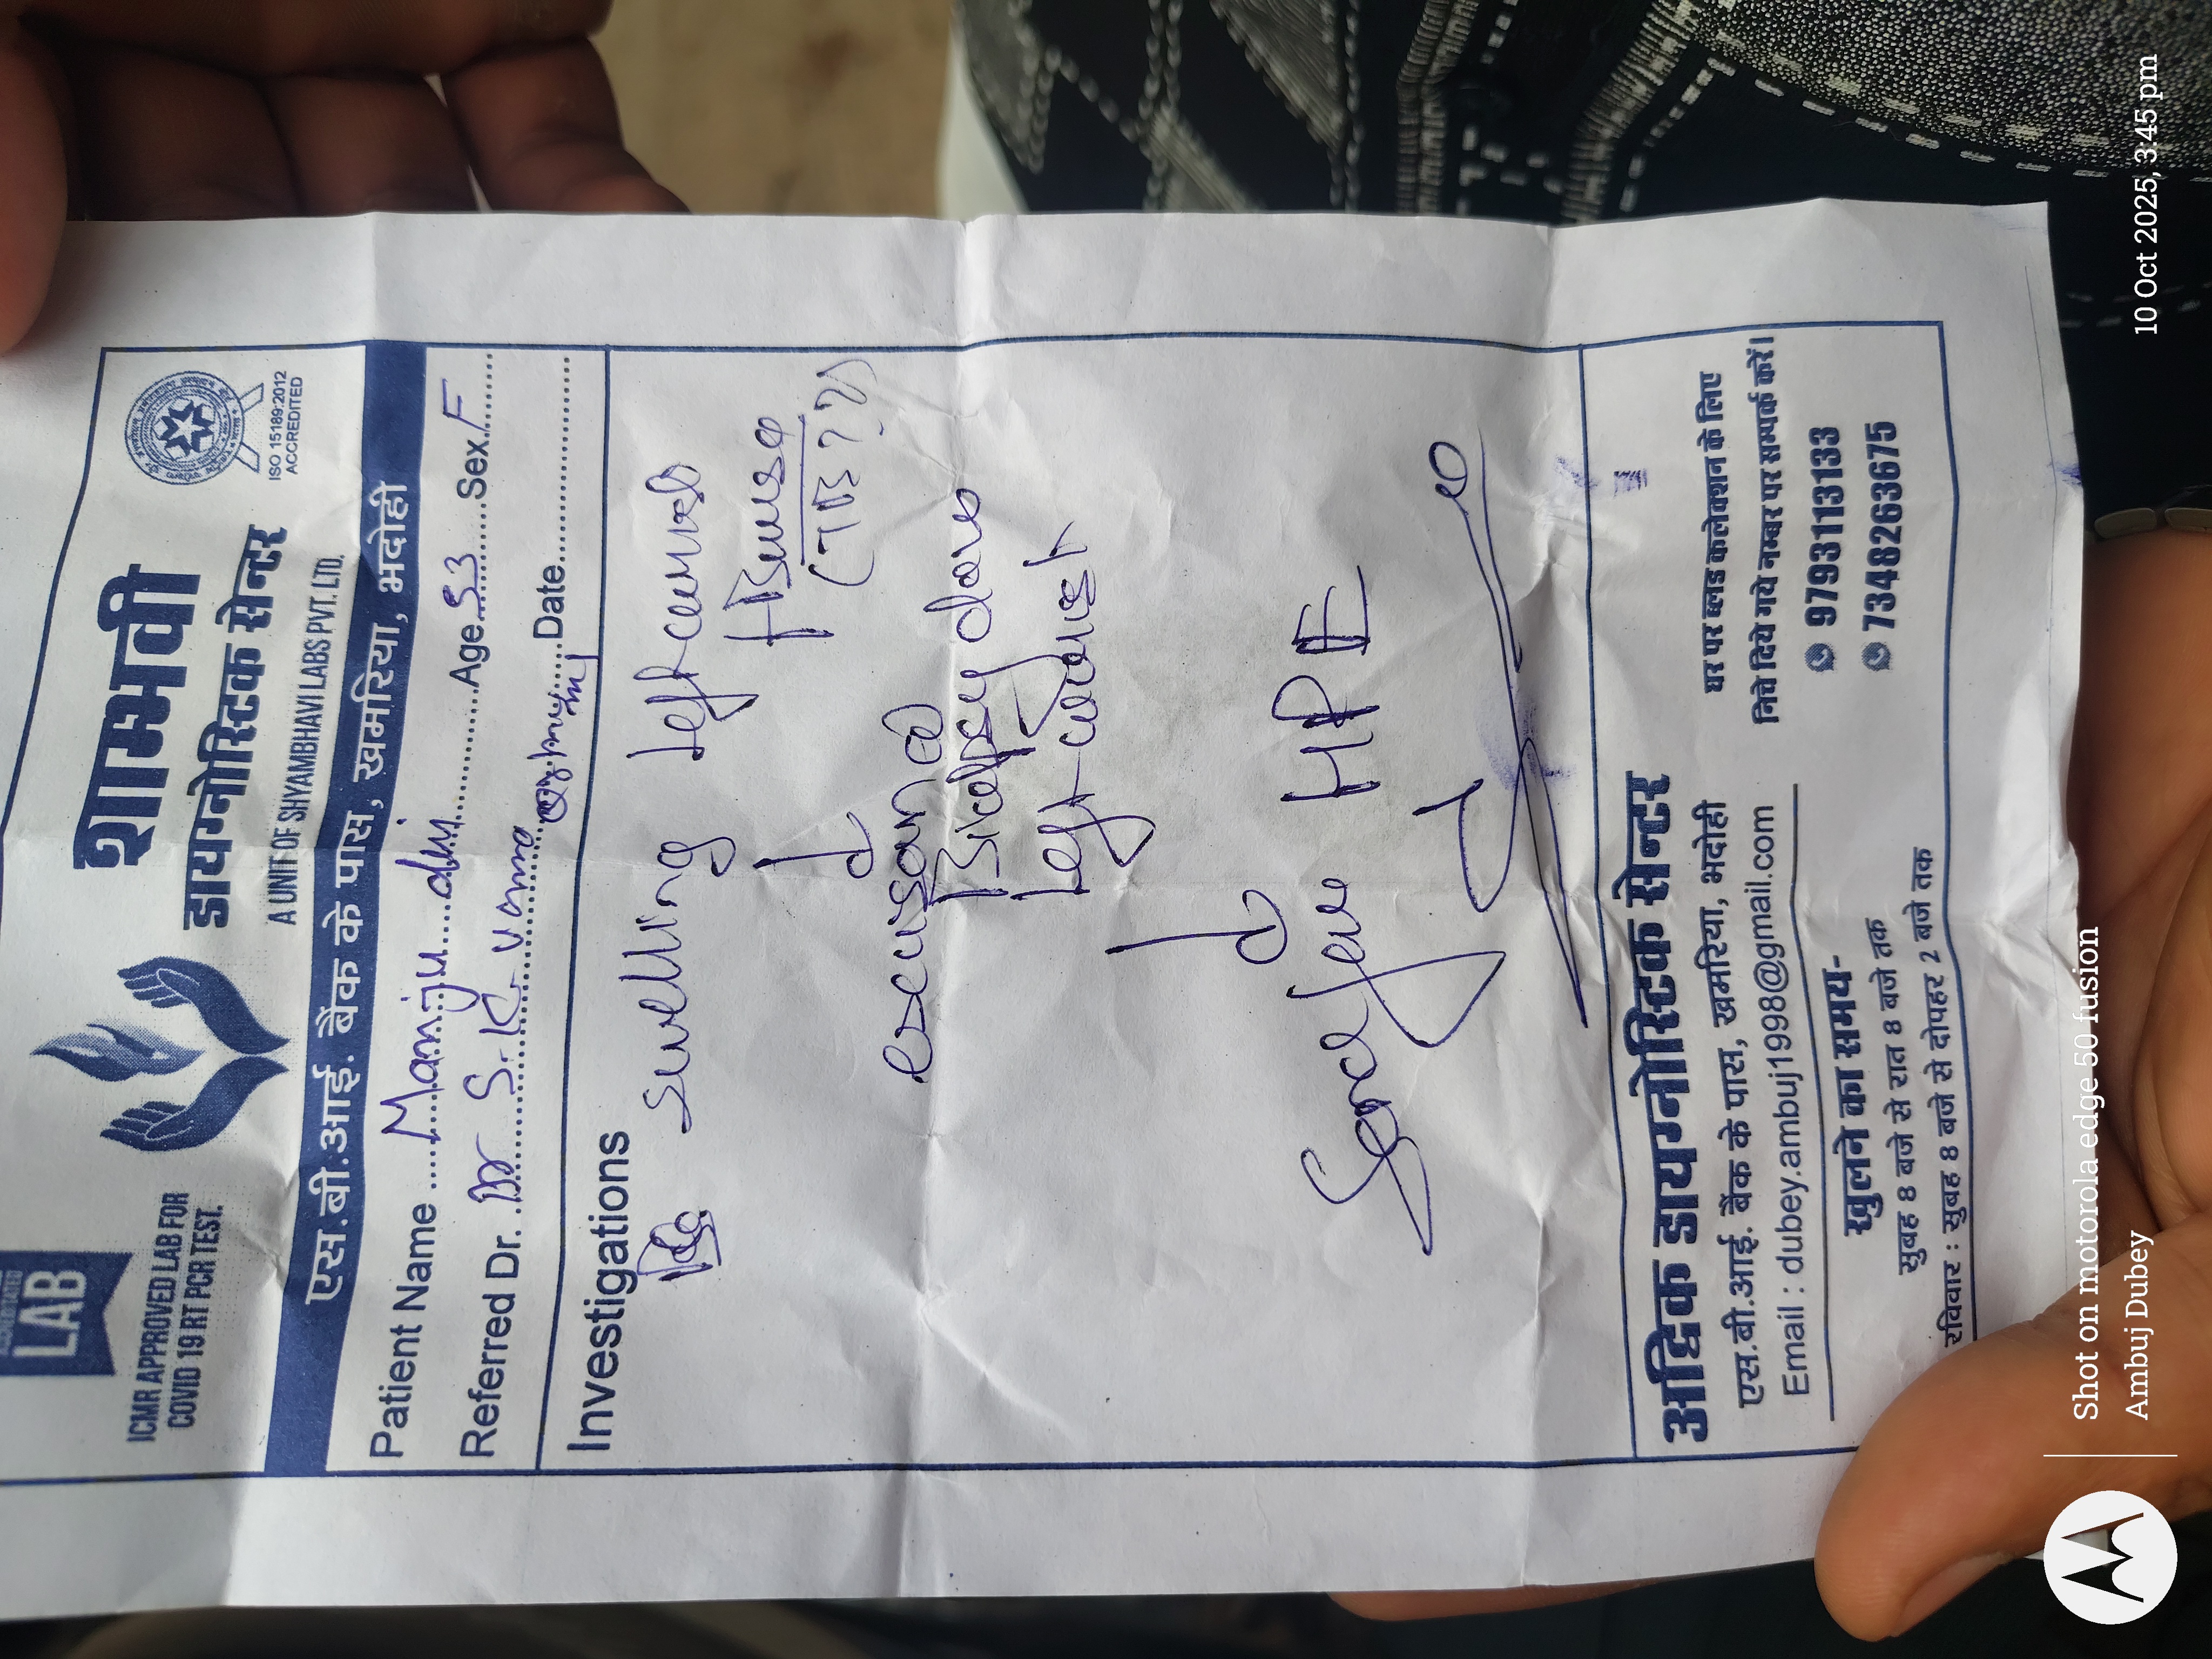 LAB
ICMR APPROVED LAB FOR
COVID 19 RT PCR TEST.
शाम्भवी
डायग्नोस्टिक सेन्टर
A UNIT OF SHYAMBHAVI LABS PVT. LTD.
ISO 15189:2012
ACCREDITED
एस.बी.आई. बैंक के पास, खमरिया, भदोही
Patient Name Manju Age 53 Sex F
Referred Dr. Dr S.K. Date
Investigations
swelling left
Bursa
(TB??)
Biopsy
left
HPE
अद्विक डायग्नोस्टिक सेन्टर
एस.बी.आई. बैंक के पास, खमरिया, भदोही
Email : dubey.ambuj1998@gmail.com
खुलने का समय-
सुबह 8 बजे से रात 8 बजे तक
रविवार : सुबह 8 बजे से दोपहर 2 बजे तक
घर पर ब्लड कलेक्शन के लिए
निचे दिये गये नम्बर पर सम्पर्क करें।
9793113133
7348263675
Shot on motorola edge 50 fusion
Ambuj Dubey
10 Oct 2025, 3:45 pm